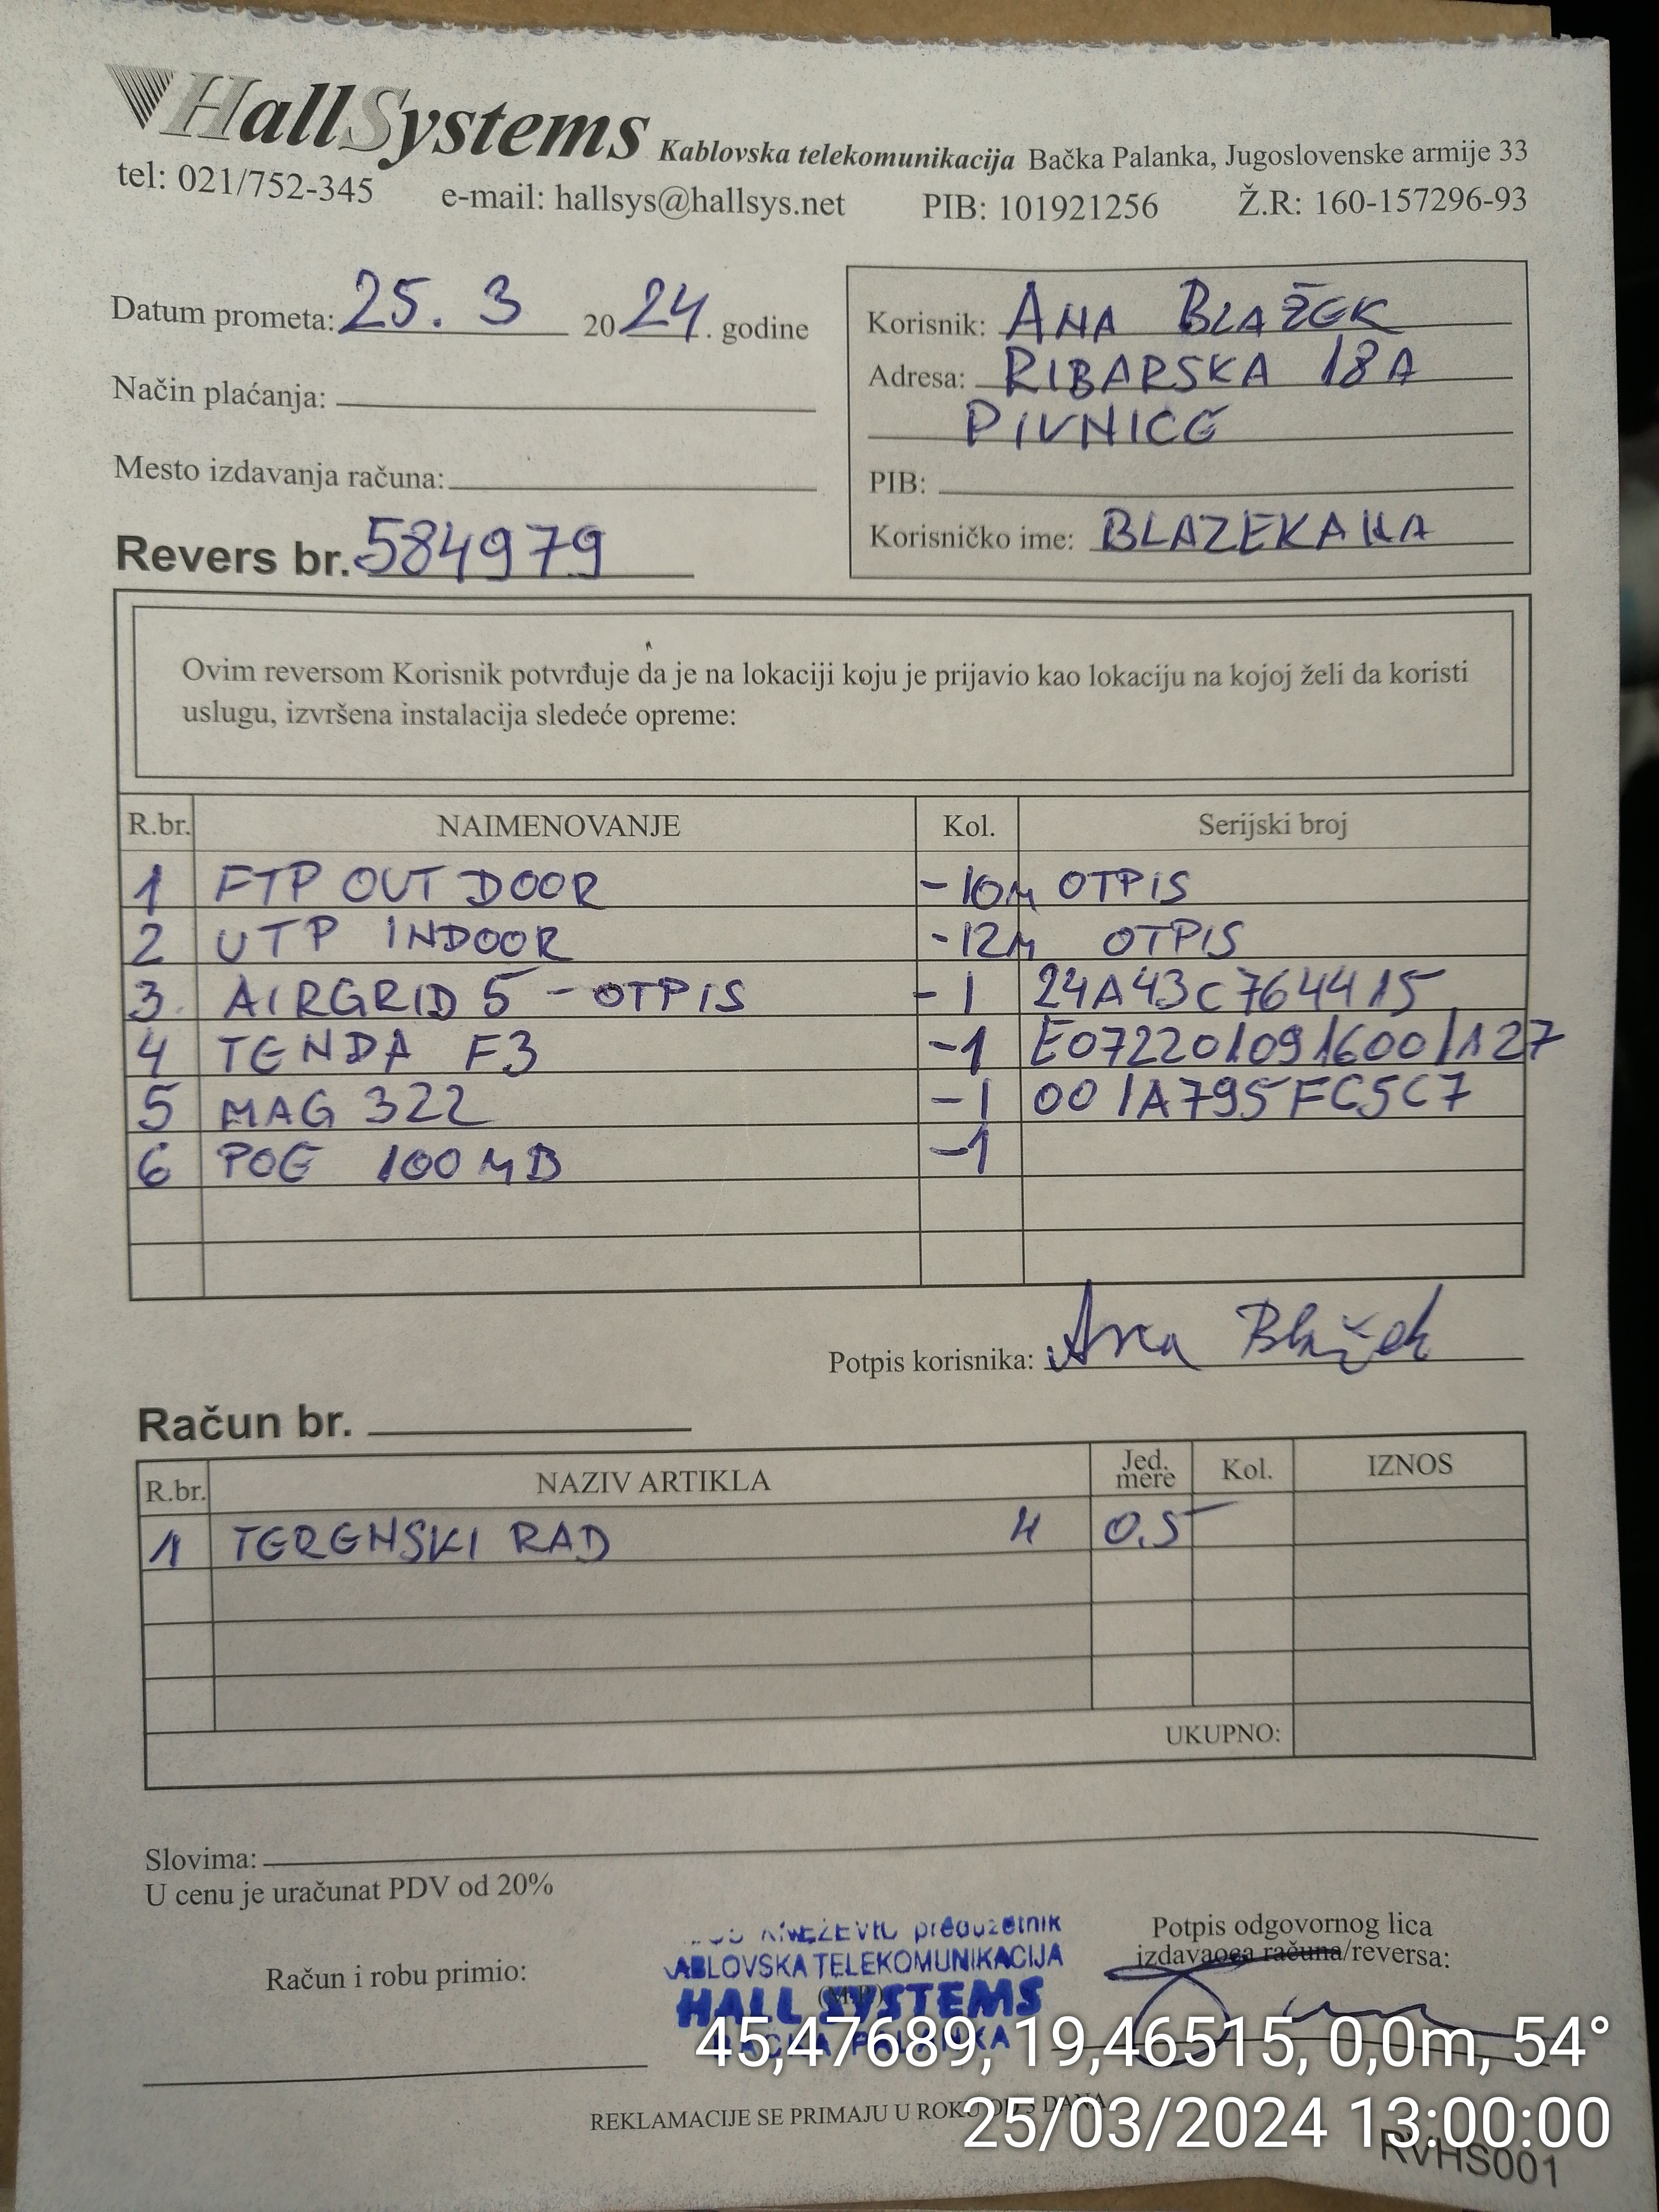 HallSystems Kablovska telekomunikacija Bačka Palanka, Jugoslovenske armije 33
tel: 021/752-345 e-mail: hallsys@hallsys.net PIB: 101921256 Ž.R: 160-157296-93
Datum prometa: 25. 3 2024. godine
Način plaćanja:
Mesto izdavanja računa:
Revers br. 584979
Korisnik: ANA BLAŽEK
Adresa: RIBARSKA 18A
PIVNICE
PIB:
Korisničko ime: BLAZEKANA
Ovim reversom Korisnik potvrđuje da je na lokaciji koju je prijavio kao lokaciju na kojoj želi da koristi
uslugu, izvršena instalacija sledeće opreme:
R.br. NAIMENOVANJE Kol. Serijski broj
1 FTP OUTDOOR -10M OTPIS
2 UTP INDOOR -12M OTPIS
3. AIRGRID 5 - OTPIS -1 24A43C764415
4 TENDA F3 -1 E0722010916001127
5 MAG 322 -1 001A795FC5C7
6 POE 100MB -1
Potpis korisnika: Ana Blažek
Račun br.
R.br. NAZIV ARTIKLA Jed. mere Kol. IZNOS
1 TERENSKI RAD H 0.5
UKUPNO:
Slovima:
U cenu je uračunat PDV od 20%
Račun i robu primio:
KNEŽEVIĆ preduzetnik
ABLOVSKA TELEKOMUNIKACIJA
HALL SYSTEMS
PALANKA
Potpis odgovornog lica
izdavaoca računa/reversa:
45,47689, 19,46515, 0,0m, 54°
REKLAMACIJE SE PRIMAJU U ROKU OD DANA
25/03/2024 13:00:00
RVHS001